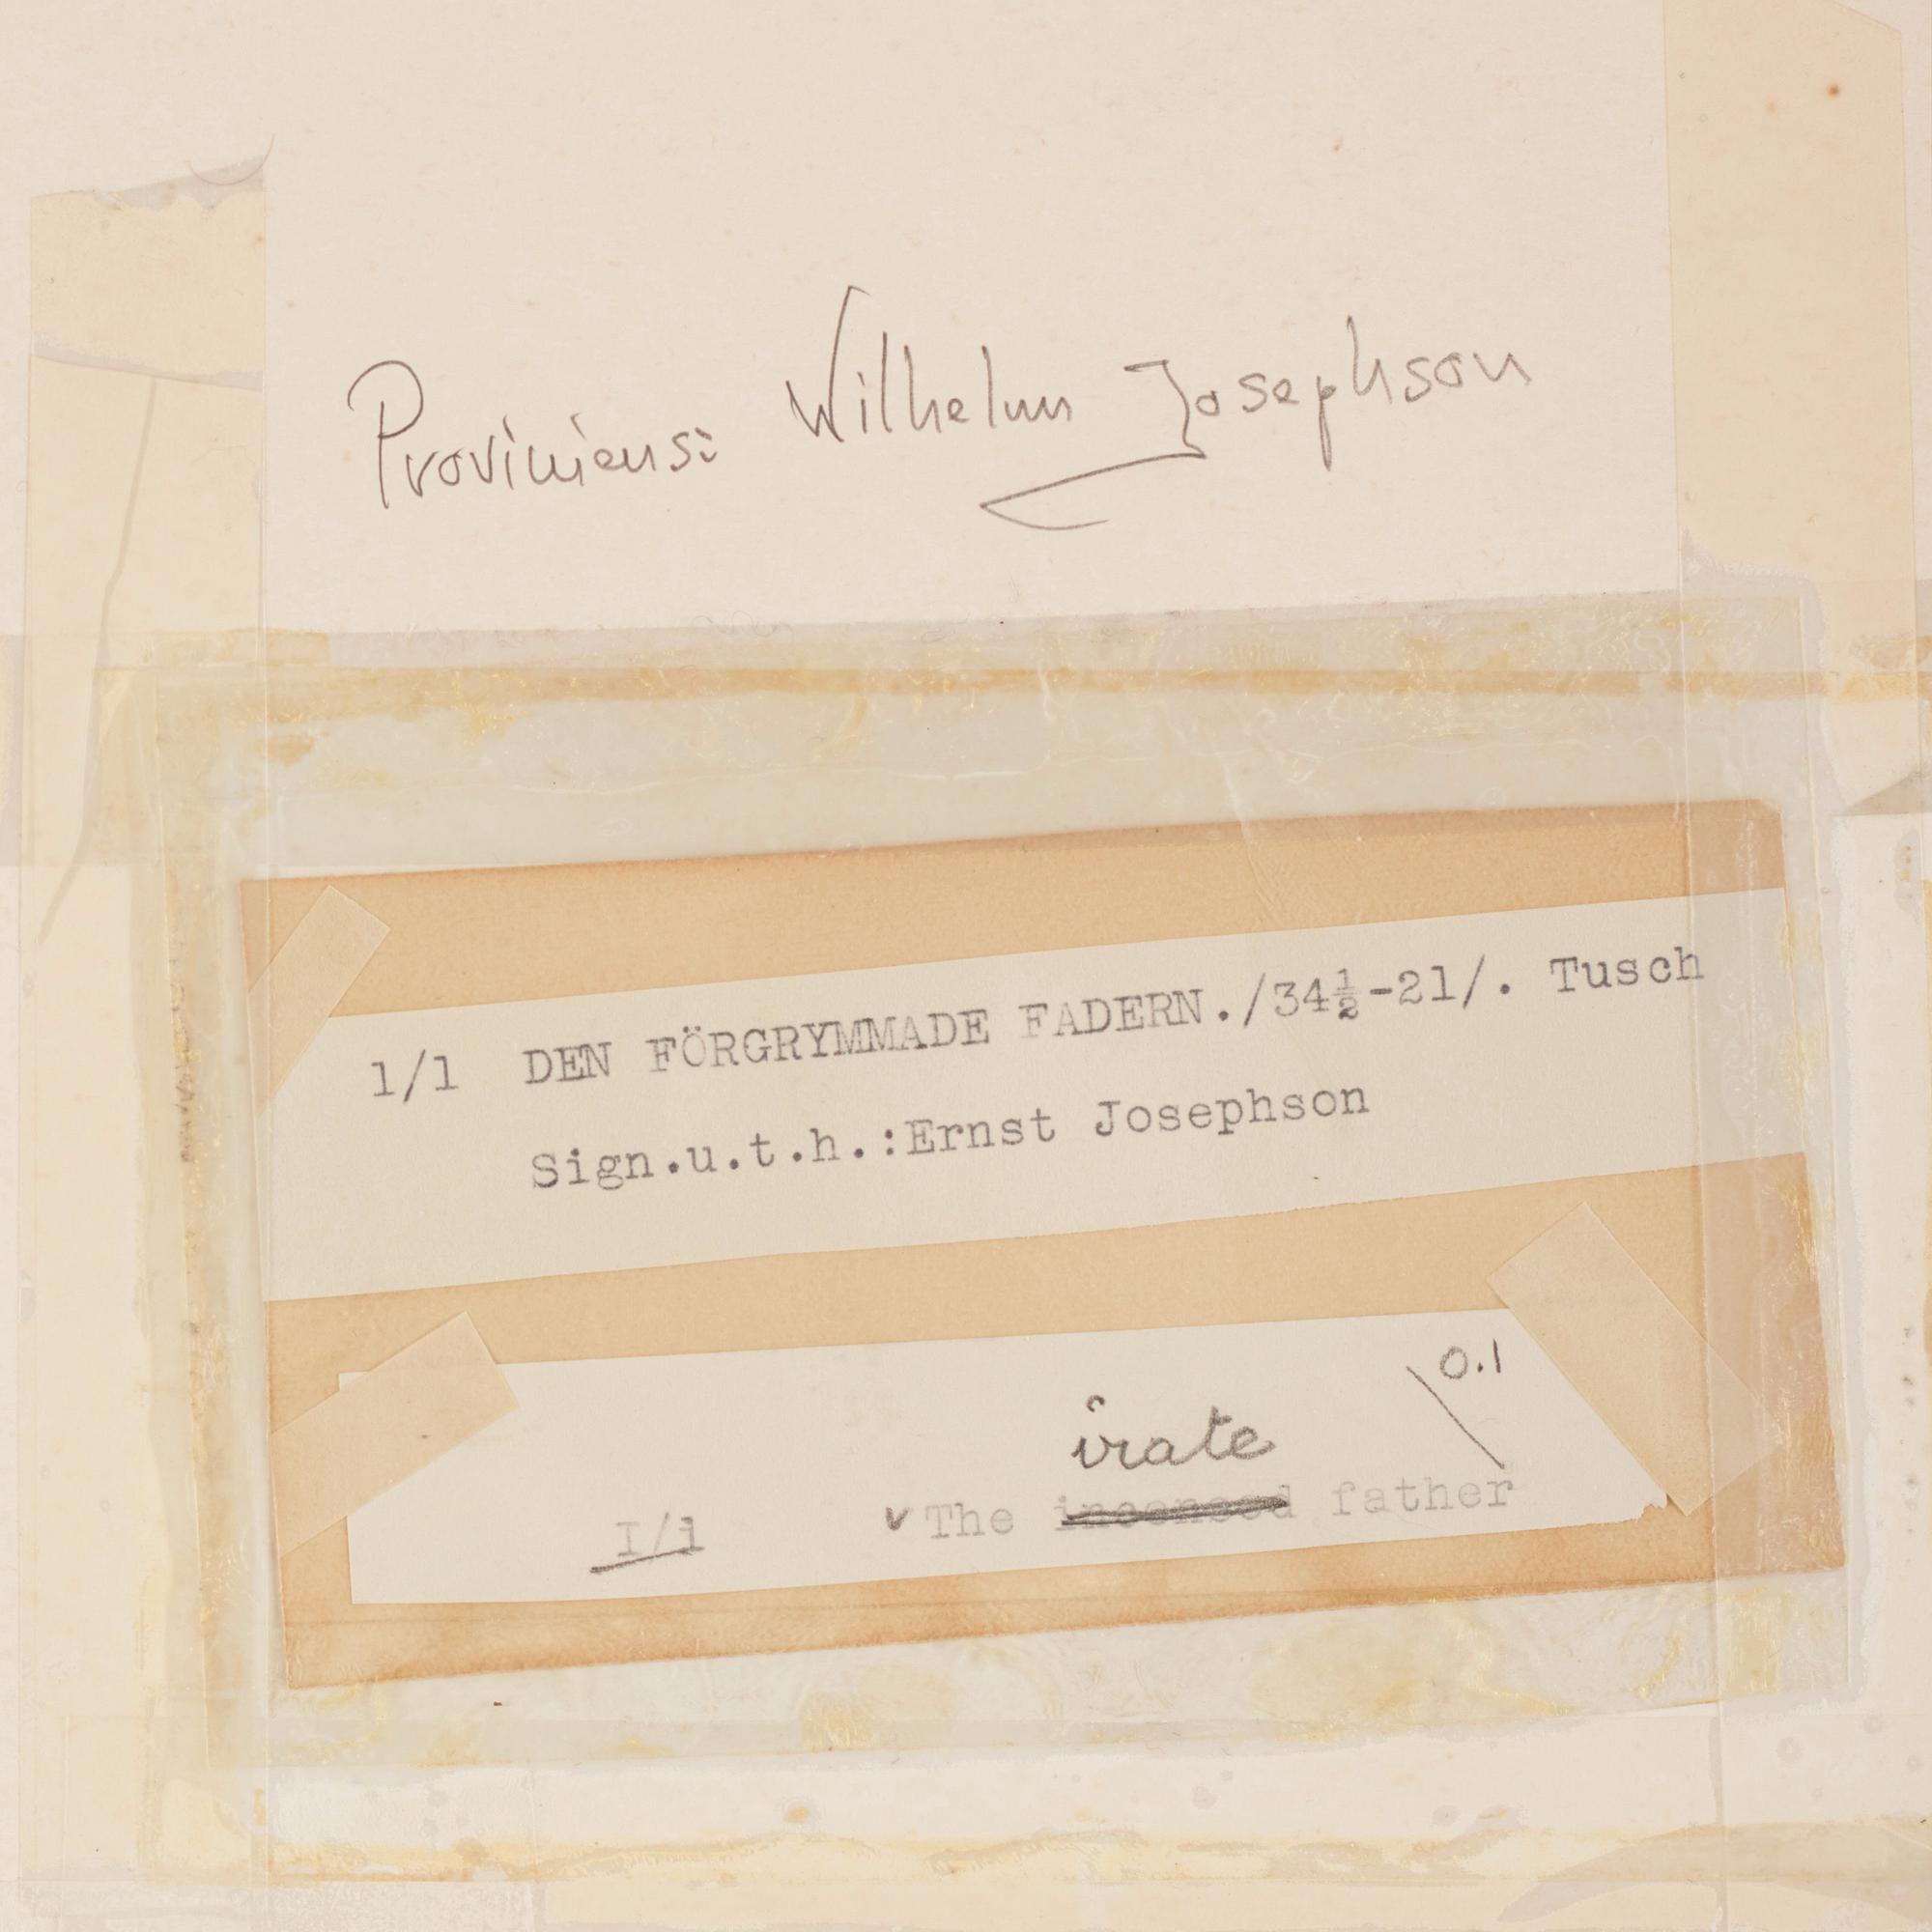 Proviniens: Wilhelm Josephson
1/1 DEN FÖRGRYMMADE FADERN./34½-21/. Tusch
Sign.u.t.h.:Ernst Josephson
0.1
irate
I/1 The incensed father